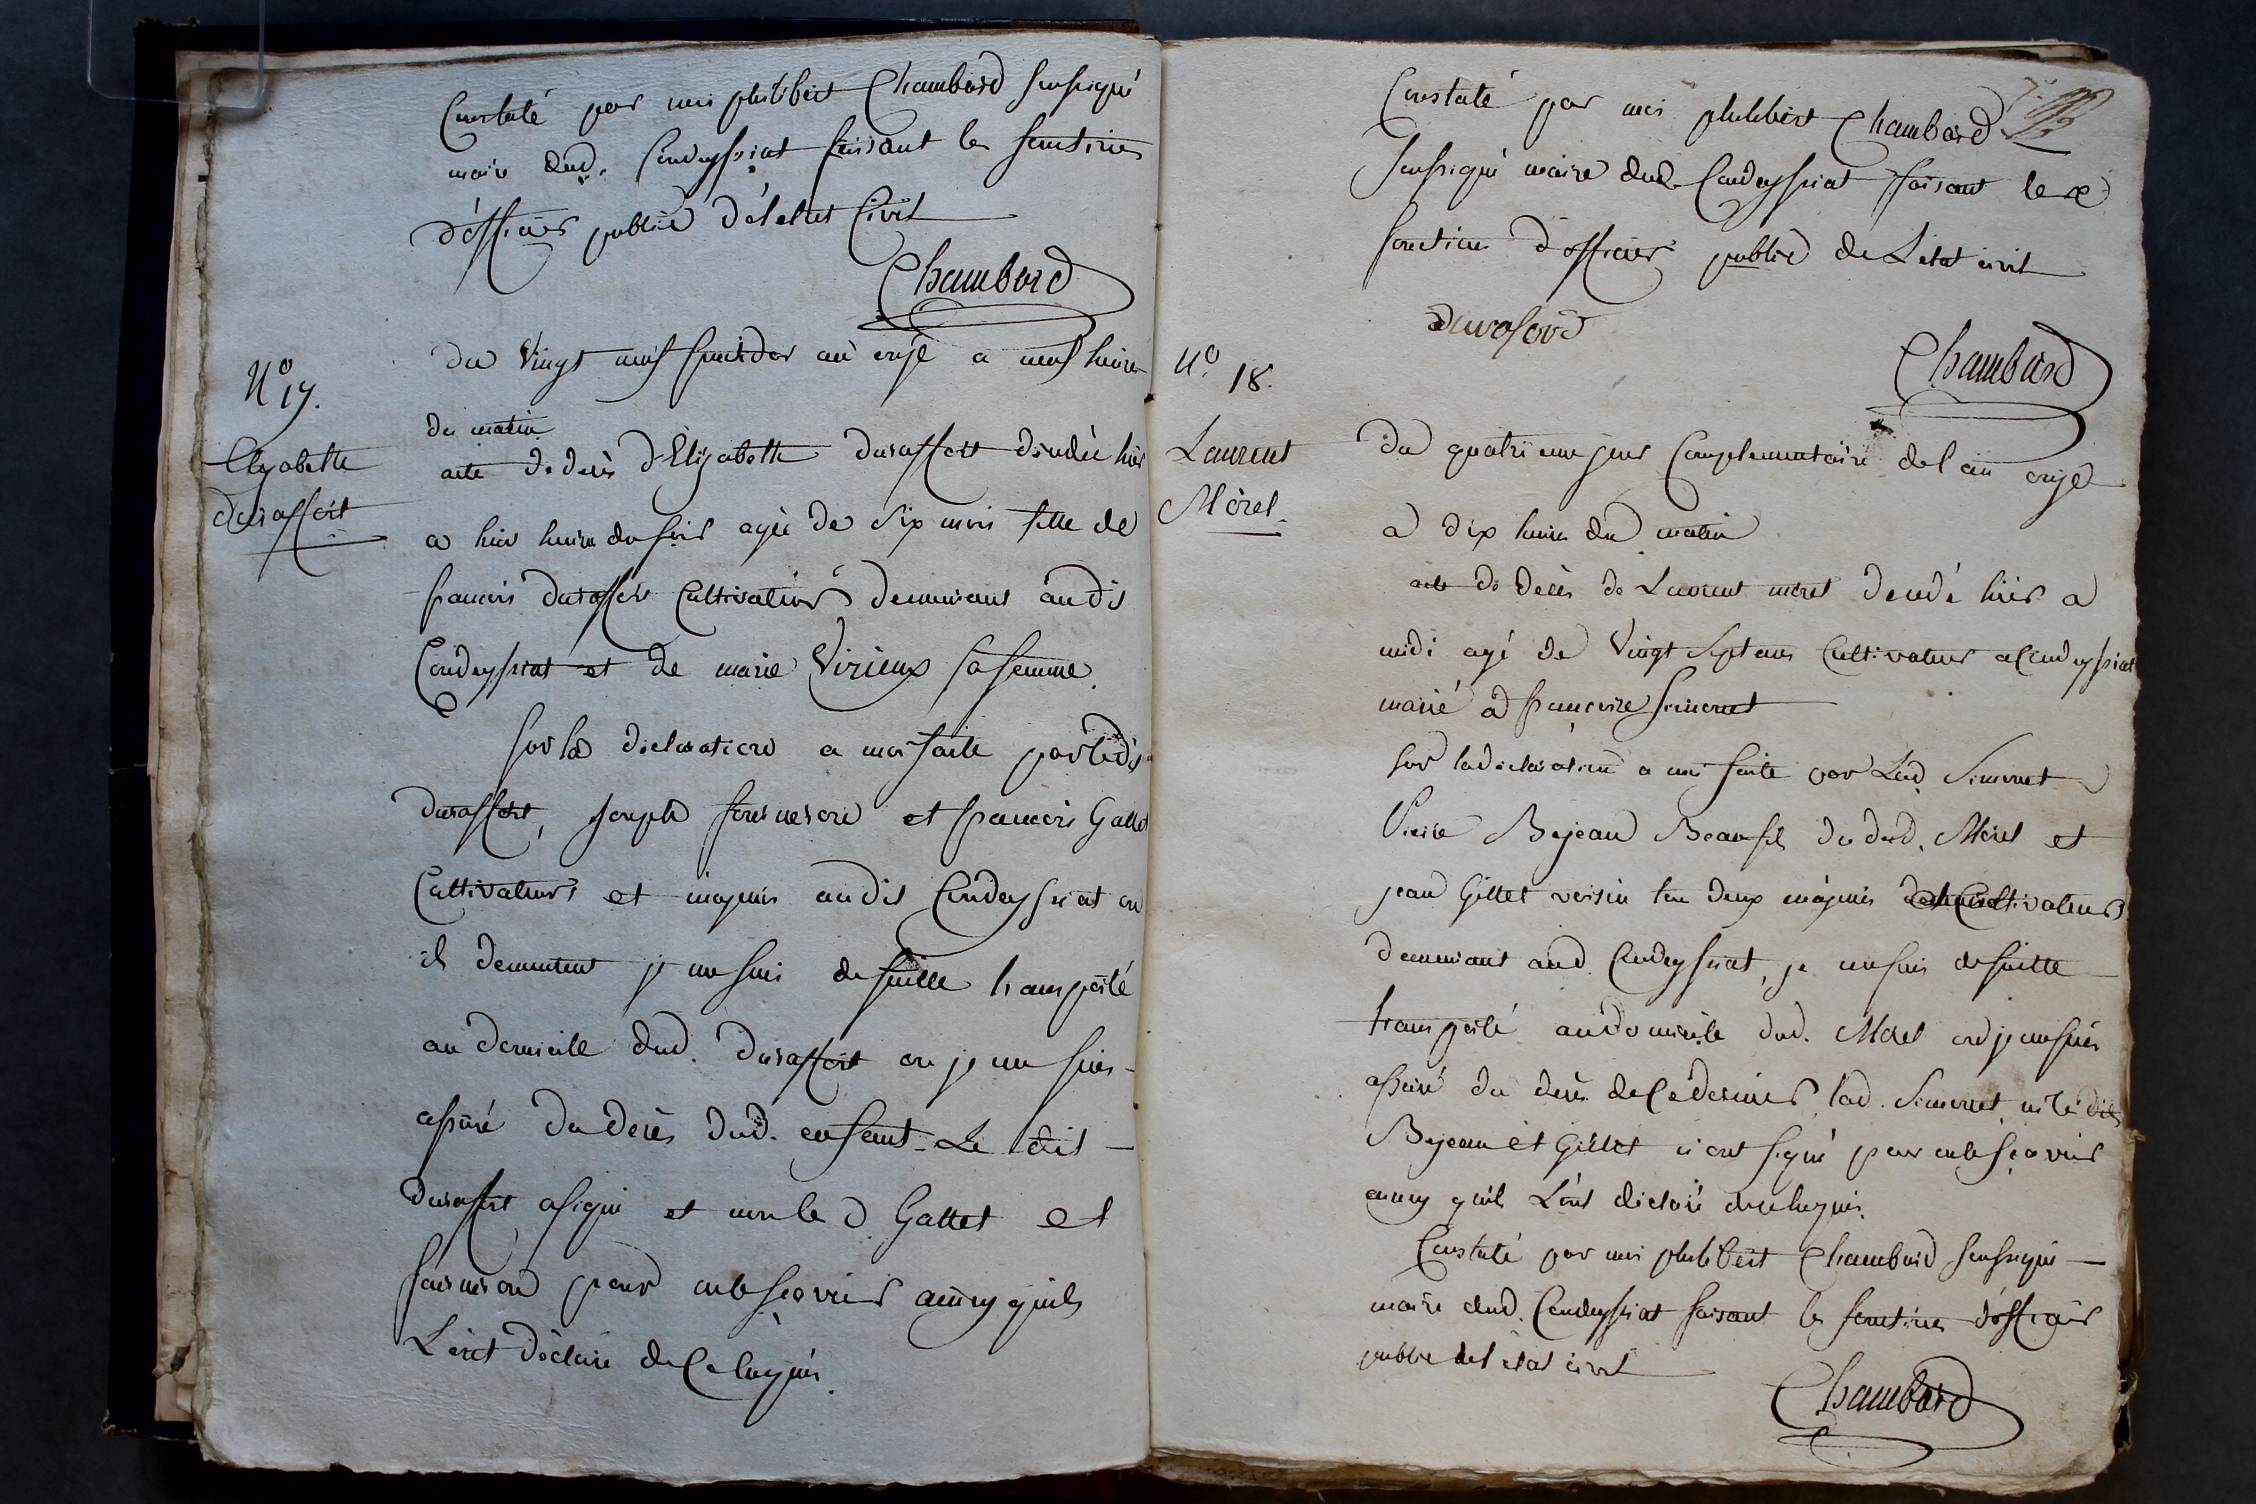 Constaté par moi philibert Chambard soussigné
maire dud. Condeyssiat faisant les fonctions
d'officier public d'létat Civil
Chambard
N° 17.
Elyzabette
duraffort
du vingt neuf fructidor an onze a neuf heures
du matin
acte de décès d'Elizabette duraffort décédée hier
a huit heures du soir agée de six mois fille de
francois duraffort Cultivateur demeurant audit
Condeyssiat et de marie Virieux sa femme.
sur la déclaration a moi faite par ledit
duraffort, joseph et francois Gallet
Cultivateurs et majeurs audit Condeyssiat ou
il demeurent je me suis de suitte transporté
au domicile dud. duraffort ou je me suis
assuré du décès dud. enfant. Le dit
duraffort a signé et non le d. Gattet et
pour ne le sçavoir ainsy quils
L'ont déclaré de Ce requis.
Constaté par moi philibert Chambard
soussigné maire dud. Condeyssiat faisant le
fonction d'officier public de L'etat civil
durasord
Chambard
N° 18.
Laurent
Morel
du quatrieme jour Complementaire del an onze
a dix heures du matin
acte de décès de Laurent morel décédé hier a
midi agé de vingt sept ans Cultivateur a Condeyssiat
marié a francoise Simonet
sur la déclaration a moi faite par Lad. Simonet
Pierre Bejean Beaufil du dud. Morel et
jean Gillet voisin tou deux majeurs Cultivateurs
demeurant aud. Condeyssiat, je me suis de suitte
transporté au domicile dud. Morel ou je me suis
assuré du décès de Ce dernier, lad. Simonet ni lé dits
Bejean et Gillet n'ont signé pour ne le sçavoir
ainsy quils L'ont déclaré de ce requis.
Constaté par moi philibert Chambard soussigné
maire dud. Condeyssiat faisant les fonctions d'officier
public del état civil
Chambard